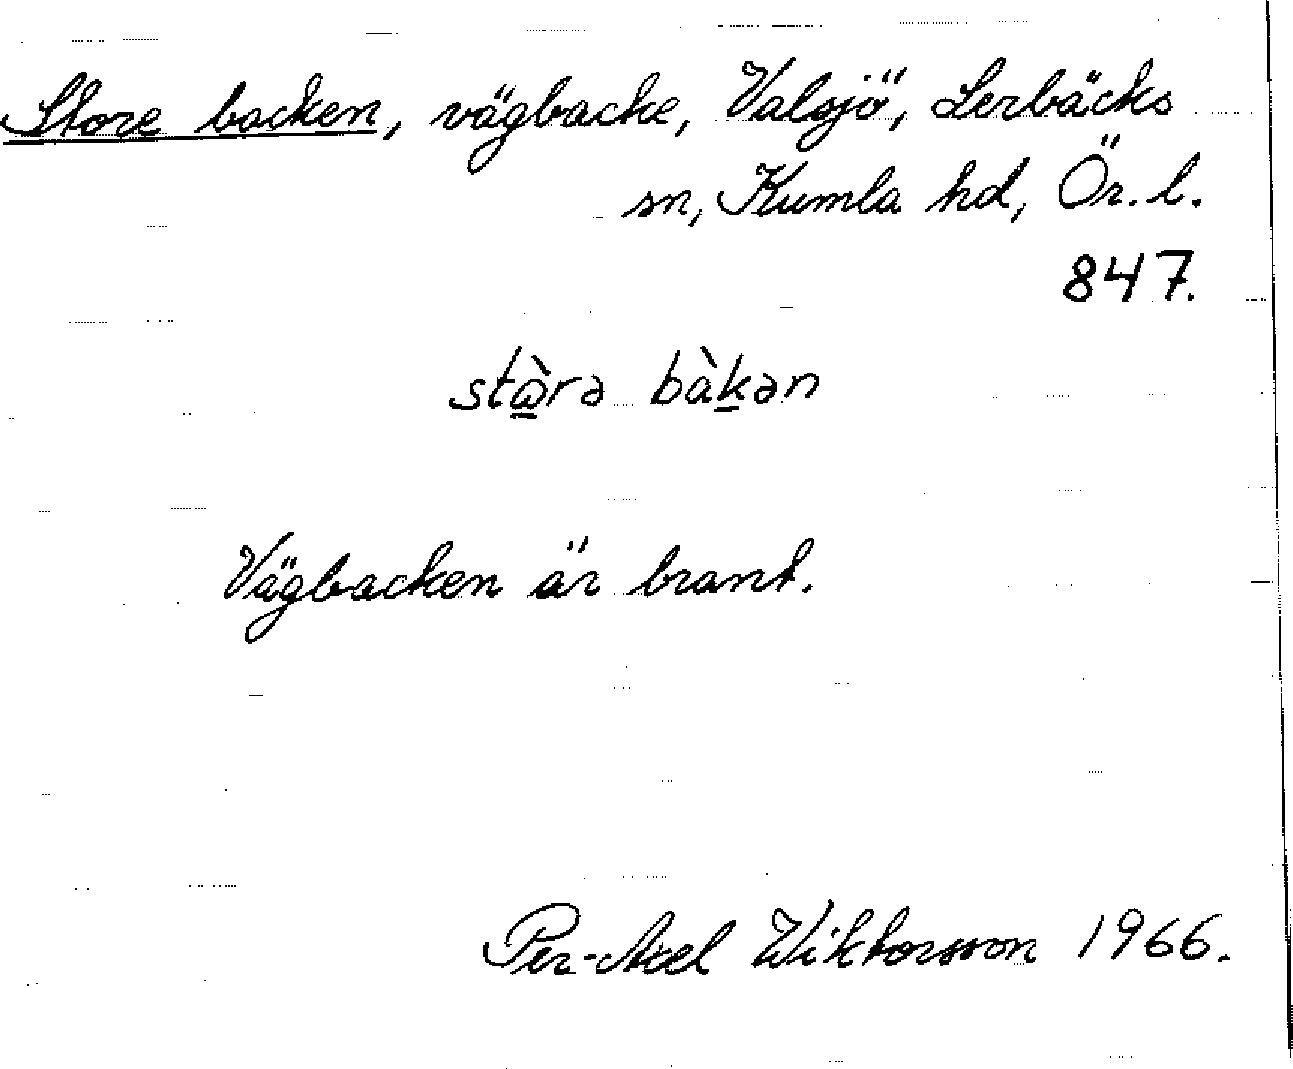 Store backen, vägbacke, Valsjö, Lerbäcks
sn, Kumla hd, Ör. l.
847.
stὼ̲rə bàk̲ən
Vägbacken är brant.
Per-Axel Wiktorsson 1966.